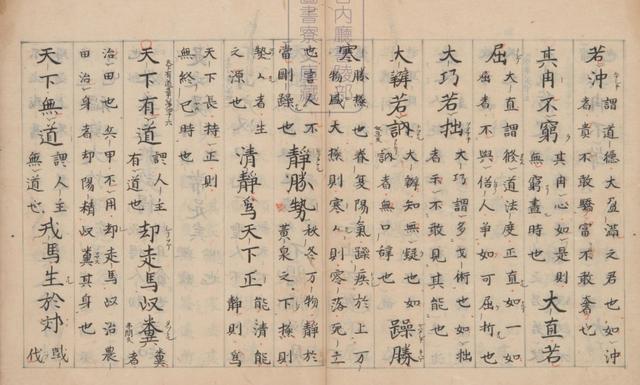 若沖 謂道德大盈滿之君也如沖
者貴不敢驕富不敢奢也
其用不窮 其用心如是則
無窮盡時也 大直若
屈 大直謂修道法度正直如一如
屈者不與俗人爭如可屈折也
大巧若拙 大巧謂多才術也如拙
者示不敢見其能也
大辯若訥 大辯知無疑也如
訥者無口辭也 躁勝
寒 勝極也春夏陽氣躁疾於上万
物盛大極則寒人則寒落死亡
也言人不
當剛躁也 靜勝熱 秋冬万物靜於
黃泉之下極則
熱者生
之源也 清靜爲天下正 能清能
靜則爲
天下長持正則
無終已時也
天下有道 謂人主
有道也 却走馬以糞 糞
者
治田也兵甲不用却走馬以治農
田治身者却陽精以糞其身也
天下無道 謂人主
無道也 戎馬生於郊 戰
伐
内廳書陵部
圖書寮文庫